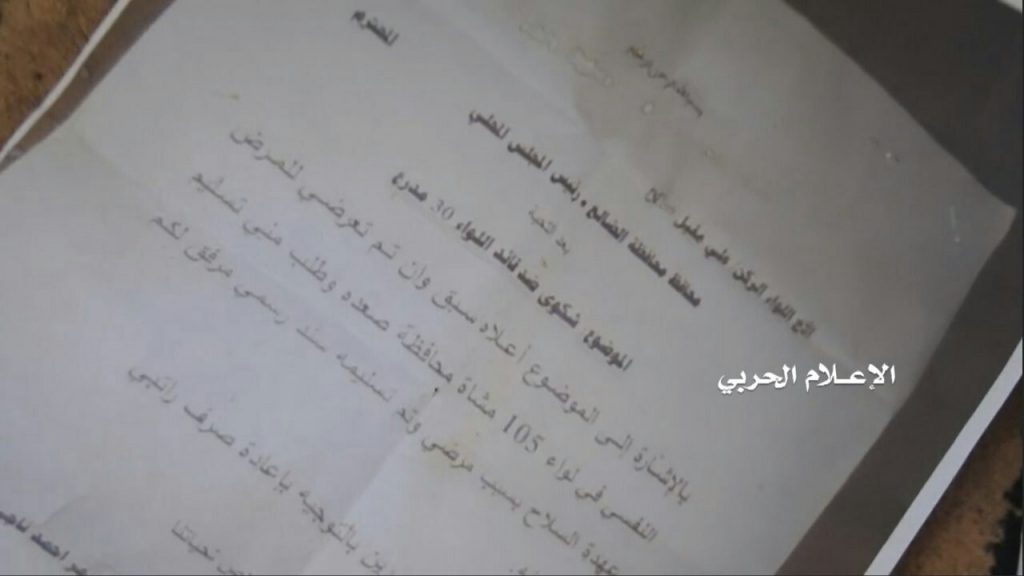 بسم الله الرحمن الرحيم
الأخ اللواء الركن علي مقبل صالح
محافظ محافظة الضالع ، رئيس المجلس المحلي
المحترم
بعد التحية
الموضوع شكوى ضد قائد اللواء 30 مدرع
بالإشارة إلى الموضوع أعلاه سبق وأن تم تعرضي للمرض
النفسي في لواء 105 مشاة محافظة صعده وطلب مني تسليم
عهدة السلاح بسبب مرضي وتم تسليمه سند رسمي مرفق لكم
بالتوجيه بإعادة صرف راتبي
تحياتنا
احمد ناجي
الإعلام الحربي